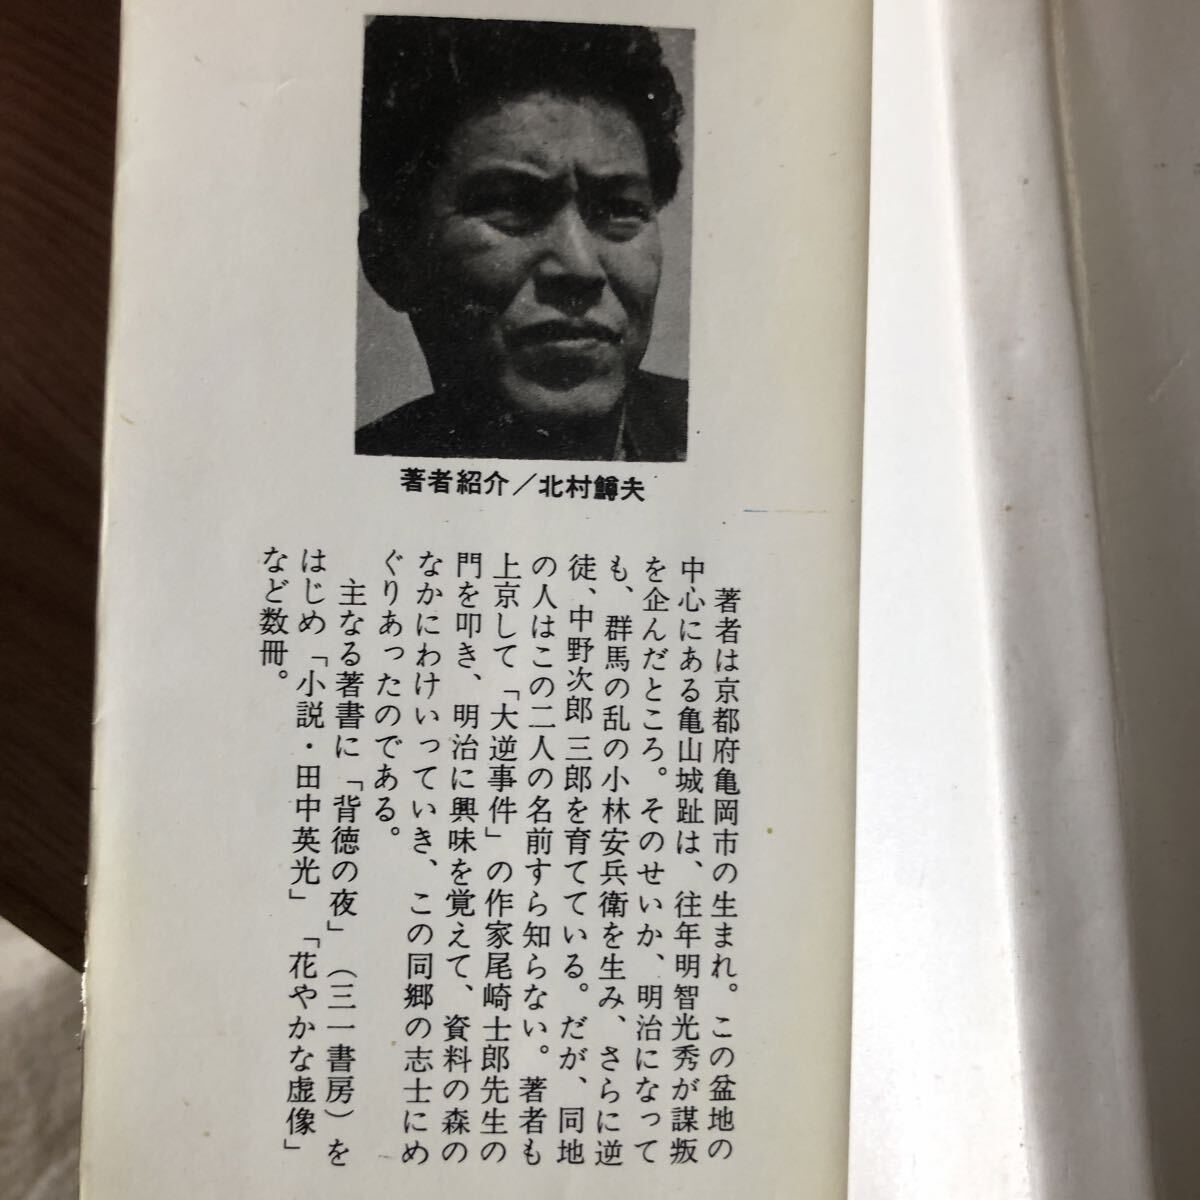 著者紹介／北村鱒夫
著者は京都府亀岡市の生まれ。この盆地の
中心にある亀山城趾は、往年明智光秀が謀叛
を企んだところ。そのせいか、明治になって
も、群馬の乱の小林安兵衛を生み、さらに逆
徒、中野次郎三郎を育てている。だが、同地
の人はこの二人の名前すら知らない。著者も
上京して「大逆事件」の作家尾崎士郎先生の
門を叩き、明治に興味を覚えて、資料の森の
なかにわけいっていき、この同郷の志士にめ
ぐりあったのである。
主なる著書に「背徳の夜」（三一書房）を
はじめ「小説・田中英光」「花やかな虚像」
など数冊。